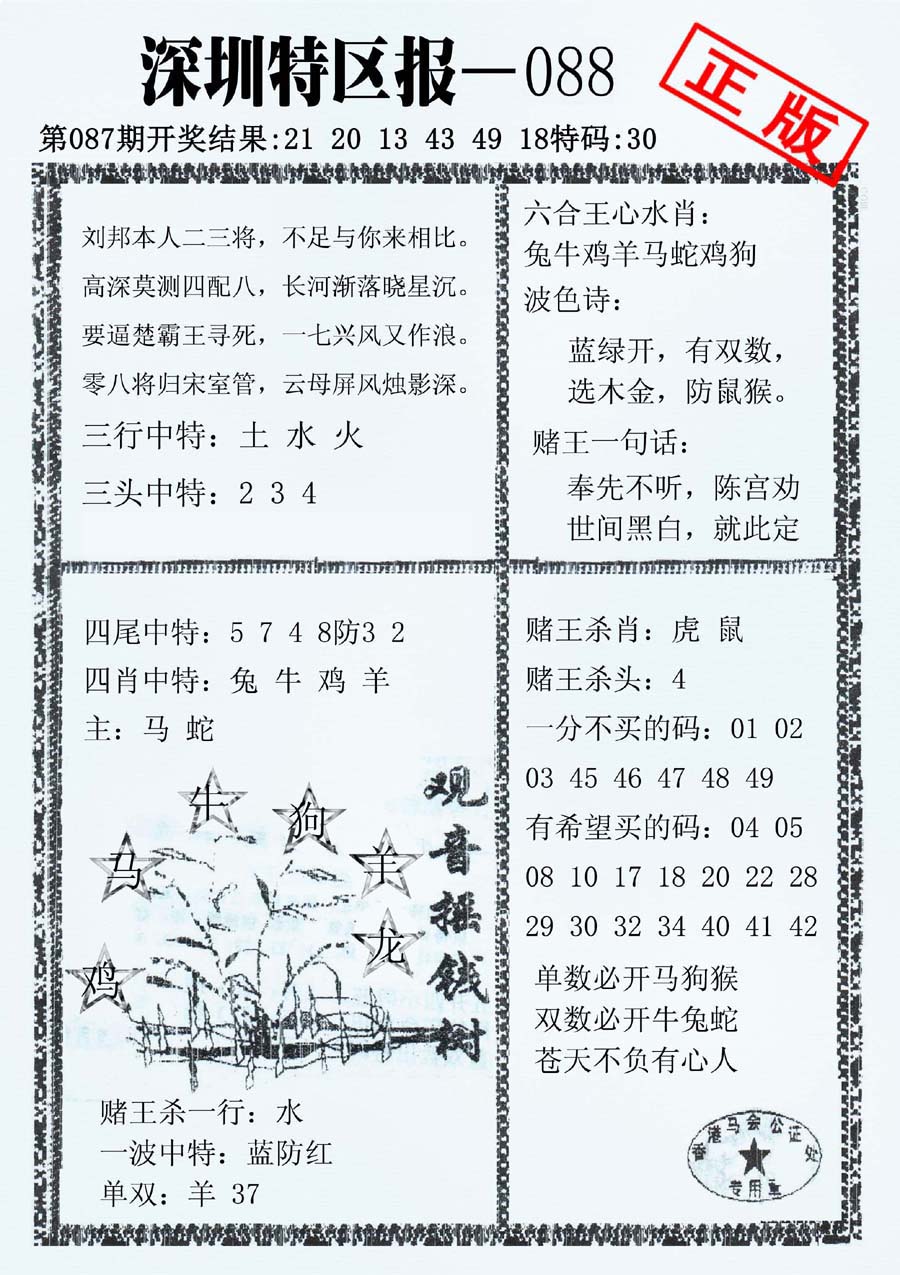 深圳特区报—088
正版
第087期开奖结果:21 20 13 43 49 18特码:30
刘邦本人二三将，不足与你来相比。
高深莫测四配八，长河渐落晓星沉。
要逼楚霸王寻死，一七兴风又作浪。
零八将归宋室管，云母屏风烛影深。
三行中特：土 水 火
三头中特：2 3 4
六合王心水肖：
兔牛鸡羊马蛇鸡狗
波色诗：
蓝绿开，有双数，
选木金，防鼠猴。
赌王一句话：
奉先不听，陈宫劝
世间黑白，就此定
四尾中特：5 7 4 8防3 2
四肖中特：兔 牛 鸡 羊
主：马 蛇
牛
狗
马
羊
龙
鸡
观音摇钱树
赌王杀一行：水
一波中特：蓝防红
单双：羊 37
赌王杀肖：虎 鼠
赌王杀头：4
一分不买的码：01 02
03 45 46 47 48 49
有希望买的码：04 05
08 10 17 18 20 22 28
29 30 32 34 40 41 42
单数必开马狗猴
双数必开牛兔蛇
苍天不负有心人
香港马会公证处
专用章